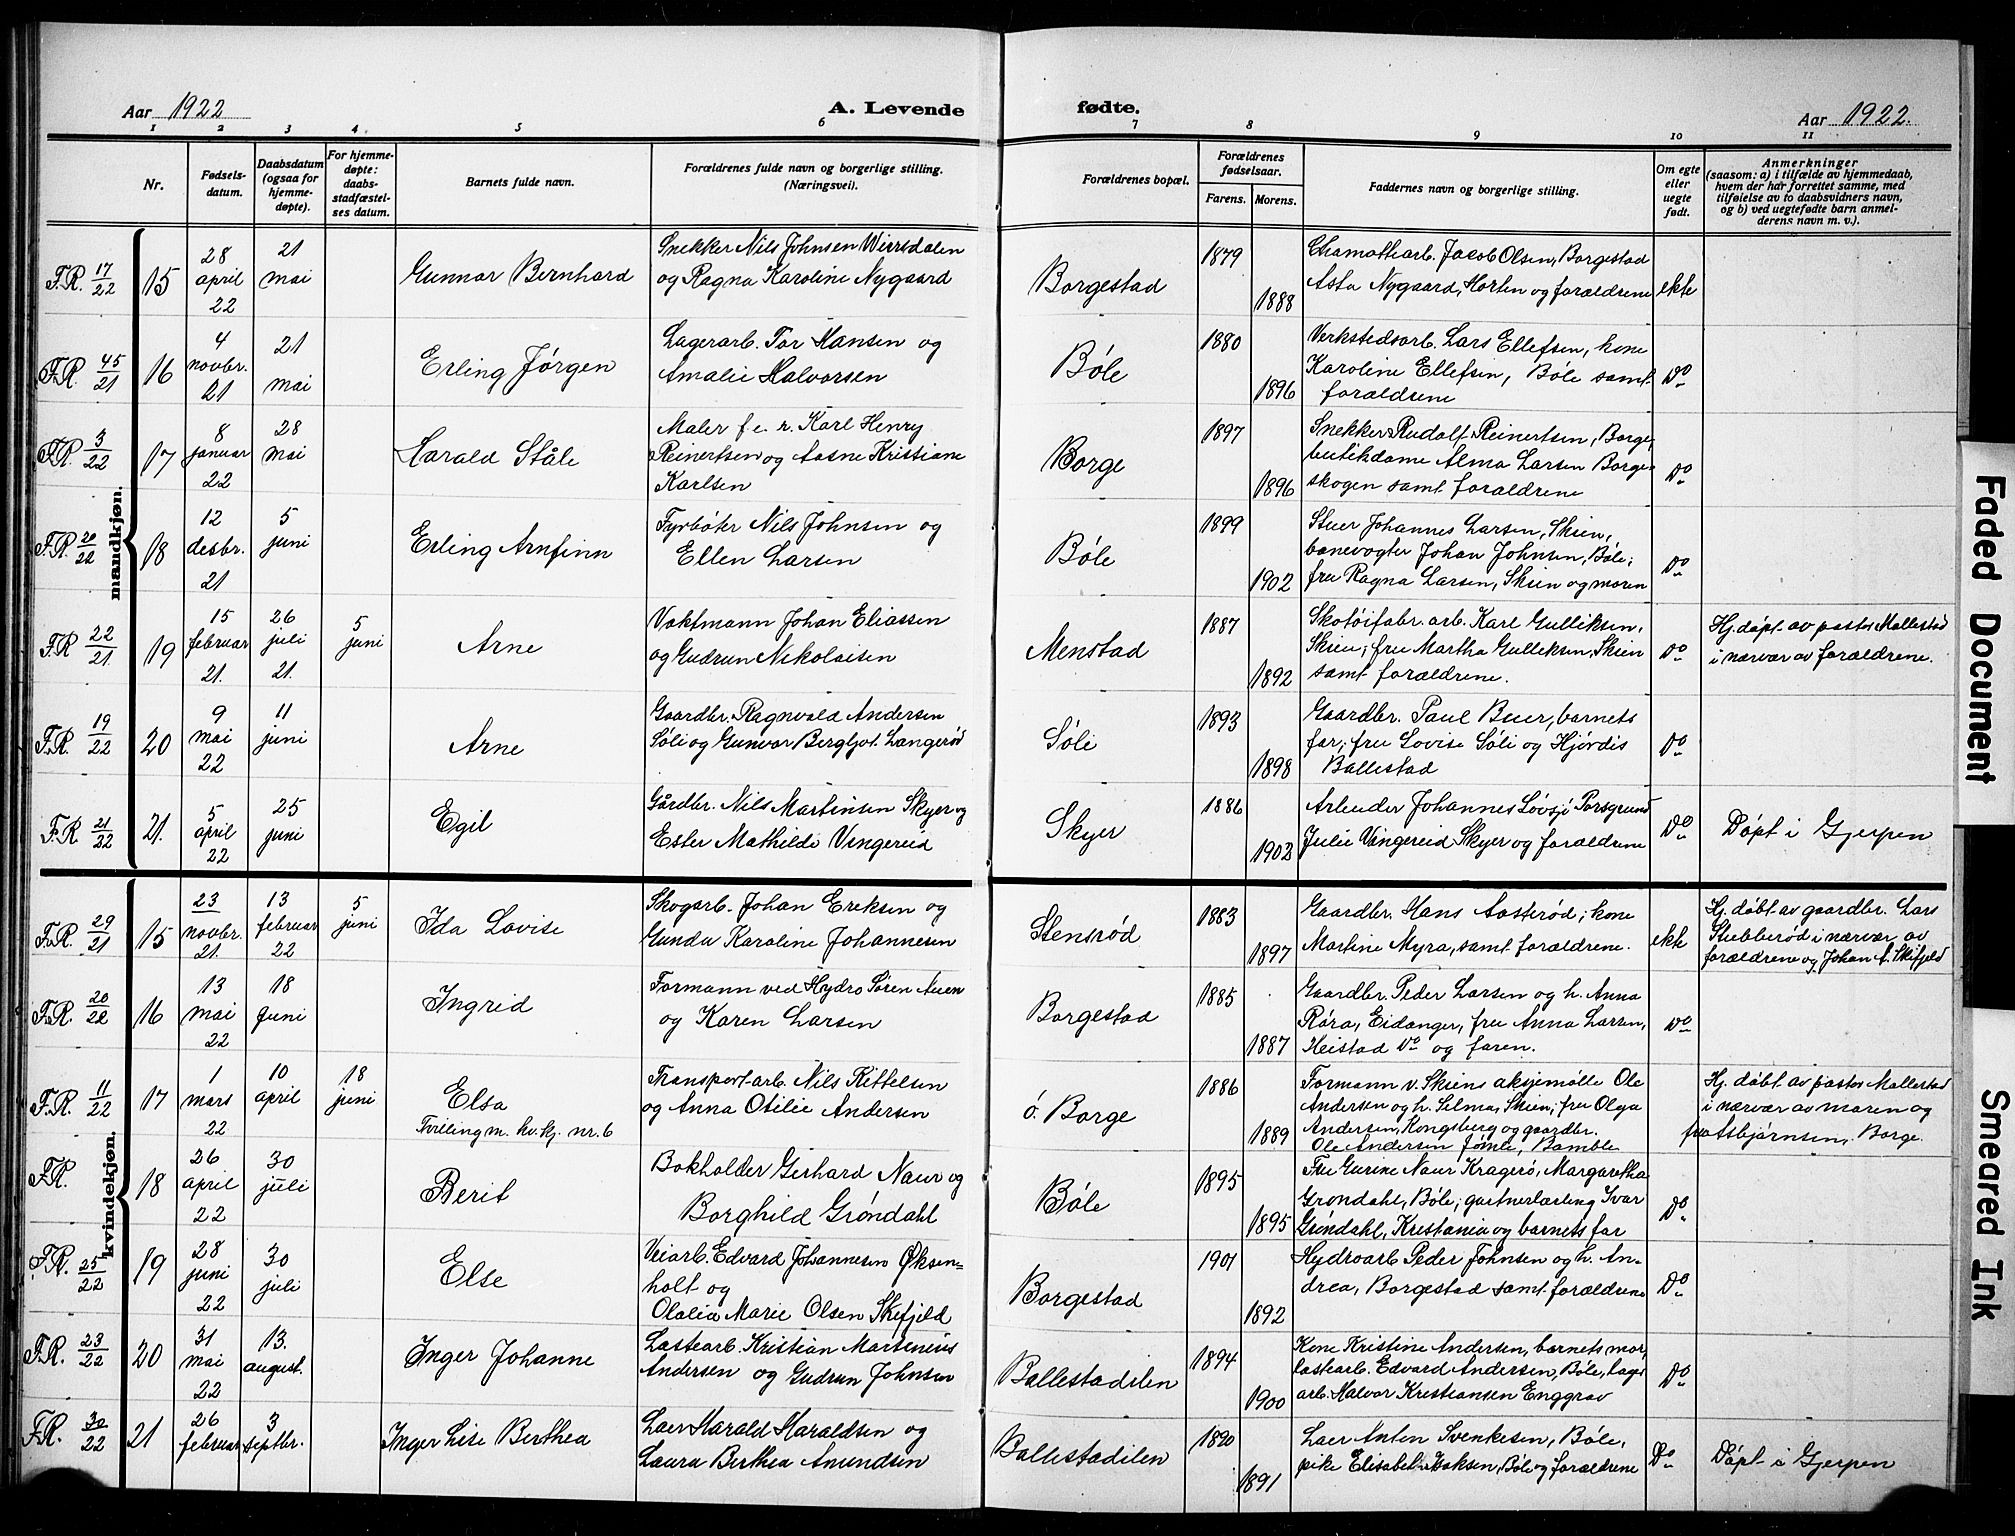 Aar 1922
A. Levende
fødte.
Aar 1922.
1 2 3 4 5 6 7 8 9 10 11
Nr.
Fødsels-
datum.
Daabsdatum
(ogsaa for
hjemme-
døpte).
For hjemme-
døpte:
daabs-
stadfæstel-
ses datum.
Barnets fulde navn.
Forældrenes fulde navn og borgerlige stilling.
(Næringsvei).
Forældrenes bopæl.
Forældrenes
fødselsaar.
Farens. Morens.
Faddernes navn og borgerlige stilling.
Om egte
eller
uegte
født.
Anmerkninger
(saasom: a) i tilfælde av hjemmedaab,
hvem der har forrettet samme, med
tilføielse av to daabsvidners navn,
og b) ved uegtefødte barn anmel-
derens navn m. v.).
mandkjøn.
F.R. 17/22
15
28
april
22
21
mai
Gunnar Bernhard
Snekker Nils Johnsen Wirrsdalen
og Ragna Karoline Nygaard
Borgestad
1879
1888
Chamottearb. Jacob Olsen, Borgestad
Asta Nygaard, Morten og forældrene
ekte
F.R. 45/21
16
4
novbr.
21
21
mai
Erling Jørgen
Lagerarb. Tor Hansen og
Amalie Halvorsen
Bøle
1880
1896
Verkstedsarb. Lars Ellefsen, kone
Karoline Ellefsen, Bøle samt
forældrene
Do
F.R. 3/22
17
8
januar
22
28
mai
Harald Ståle
Maler f. e. r. Karl Henry
Reinertsen og Aasne Kristiane
Karlsen
Borge
1897
1896
Snekker Rudolf Reinertsen, Borge,
butikdame Alma Larsen Borge-
skogen samt forældrene
Do
F.R. 20/22
18
12
desbr.
21
5
juni
Erling Arnfinn
Fyrbøter Nils Johnsen og
Ellen Larsen
Bøle
1899
1902
Stuer Johannes Larsen, Skien,
banevogter Johan Johnsen, Bøle;
fru Ragna Larsen, Skien og moren
Do
F.R 22/21
19
15
februar
21.
26
juli
21.
5
juni
Arne
Vaktmann Johan Eliassen
og Gudrun Nikolaisen
Menstad
1887
1892
Skotøifabr. arb. Karl Gulliksen,
Skien; fru Martha Gulliksen, Skien
samt forældrene.
Do
Hj. døpt av pastor Mallestad
i nærvær av forældrene.
F.R. 19/22
20
9
mai
22
11
juni
Arne
Gaardbr. Ragnvald Andersen
Søli og Gunvor Bergljot Langerød
Søli
1893
1898
Gaardbr. Paul Buer, barnets
far; fru Lovise Søli og Hjørdis
Ballestad
Do
F.R 21/22
21.
5
april
22
25
juni
Egil
Gårdbr. Nils Martinsen Skyer og
Ester Mathilde Vingereid
Skyer
1886
1902
Arbeider Johannes Løvsjø Porsgrund
Julie Vingereid Skyer og forældrene
Do
Døpt i Gjerpen
kvindekjøn.
F.R. 29/21
15
23
novbr.
21.
13
februar
22
5
juni
Ida Lovise
Skogarb. Johan Eriksen og
Gunda Karoline Johannesen
Stensrød
1883
1897
Gaardbr. Hans Aasterød; kone
Martine Myra, samt forældrene.
ekte
Hj. døbt av gaardbr. Lars
Stubberød i nærvær av
forældrene og Johan A. Skifjeld
F.R. 20/22
16
13
mai
22
18
juni
Ingrid
Formann ved Hydro Søren Auen
og Karen Larsen
Borgestad
1885
1887
Gaardbr. Peder Larsen og h. Anna
Røra, Eidanger, fru Anna Larsen,
Heistad Do og faren.
Do
F.R. 11/22
17
1
mars
22
10
april
18
juni
Elsa
Tvilling m. kv. kj. nr. 6
Transportarb. Nils Kittelsen
og Anna Otilie Andersen
ö. Borge
1886
1889
Formann v. Skiens aksjemølle Ole
Andersen og h. Selma, Skien; fru Olga
Andersen, Kongsberg og gaardbr.
Ole Andersen Jømle, Bamble
Hj. døbt av pastor Mallestad
i nærvær av moren og
fru Asbjørnsen, Borge.
F.R.
18
26
april
22
30
juli
Berit
Bokholder Gerhard Naur og
Borghild Grøndahl
Bøle
1895
1895
Fru Gurine Naur Kragerø, Margaretha
Grøndahl, Bøle; gartnerlærling Ivar
Grøndahl, Kristania og barnets far
Do
F.R. 25/22
19
28
juni
22
30
juli
Else
Veiarb. Edvard Johannesen Øksen-
holt og
Olalia Marie Olsen Skifjeld
Borgestad
1901
1892
Hydroarb Peder Johnsen og h. An-
drea, Borgestad samt forældrene
Do
F.R. 23/22
20
31
mai
22
13.
august.
Inger Johanne
Lastearb. Kristian Martinius
Andersen og Gudrun Johnsen
Ballestadilen
1894
1900
Kone Kristine Andersen, barnets mor,
lastearb. Edvard Andersen, Bøle, lager
arb. Halvor Kristiansen Enggrav
Do
F.R. 30/22
21
26
februar
3
septbr.
Inger Lise Berthea
Laer Harald Haraldsen og
Laura Berthea Amundsen
Ballestadilen
1890
1891
Laer Anton Svenkesen, Bøle,
pike Elisabet Isaksen, Bøle og forældrene
Do
Døpt i Gjerpen
Faded Document
Smeared Ink